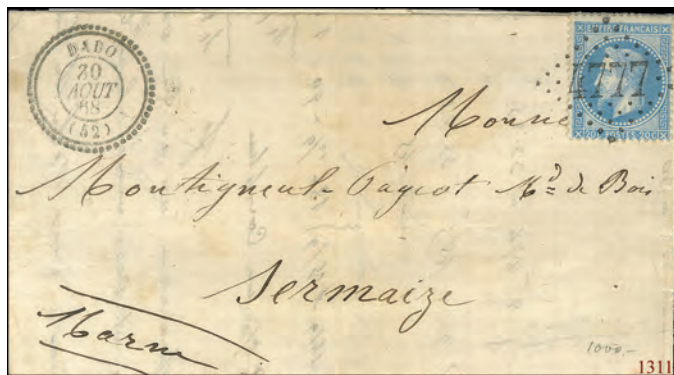 DABO
20
AOUT
68
(52)
EMPIRE FRANCAIS
4777
20C POSTES 20C
Monsie
Montigneul-Pageot Md de Bois
Sermaize
Marne
1000.-
1311